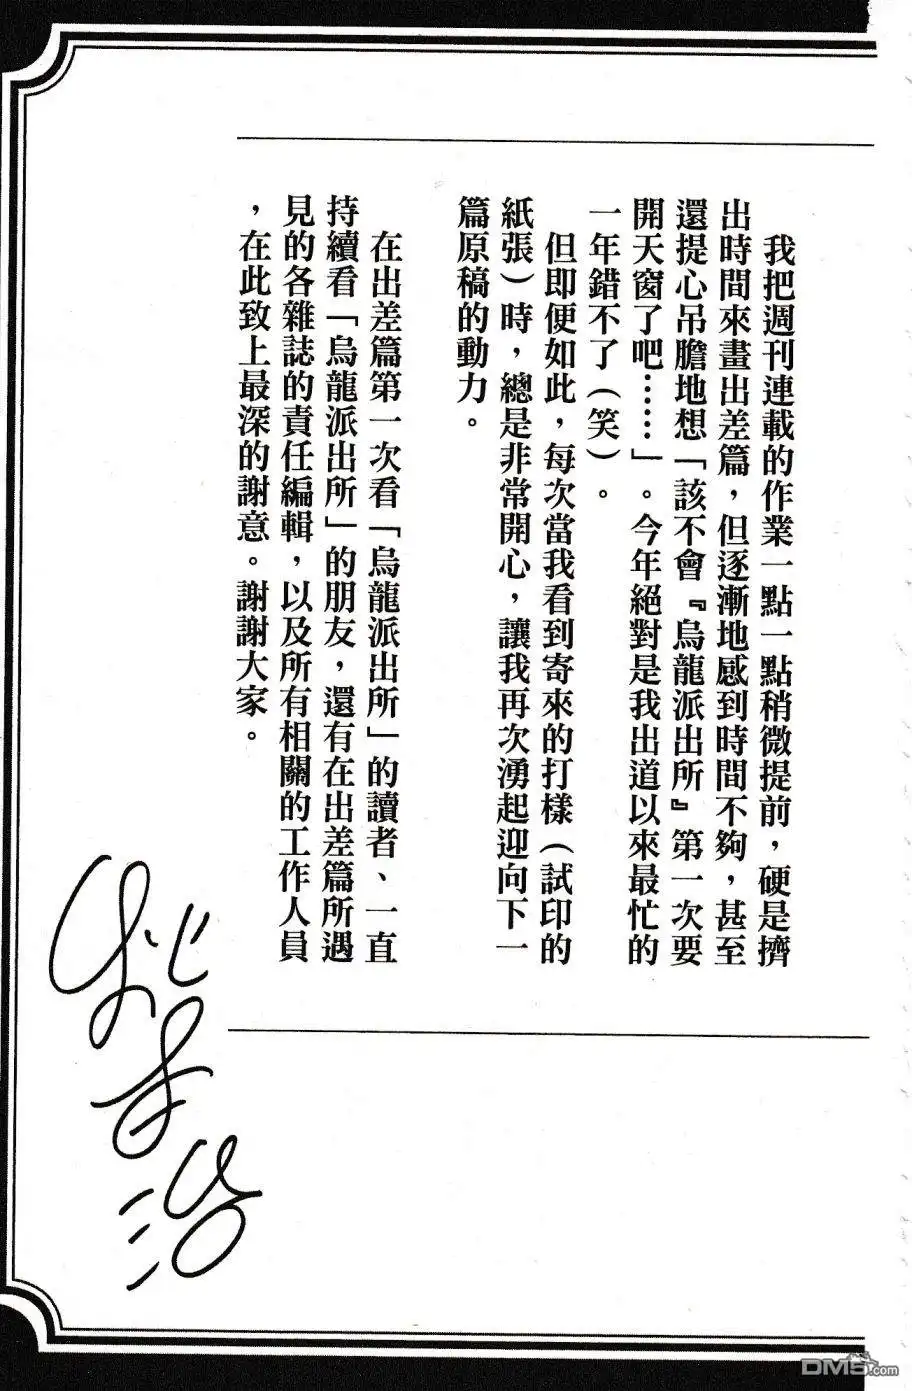 我把週刊連載的作業一點一點稍微提前，硬是擠
出時間來畫出差篇，但逐漸地感到時間不夠，甚至
還提心吊膽地想「該不會『烏龍派出所』第一次要
開天窗了吧……」。今年絕對是我出道以來最忙的
一年錯不了（笑）。
但即便如此，每次當我看到寄來的打樣（試印的
紙張）時，總是非常開心，讓我再次湧起迎向下一
篇原稿的動力。
在出差篇第一次看「烏龍派出所」的讀者、一直
持續看「烏龍派出所」的朋友，還有在出差篇所遇
見的各雜誌的責任編輯，以及所有相關的工作人員
，在此致上最深的謝意。謝謝大家。
DM5.com